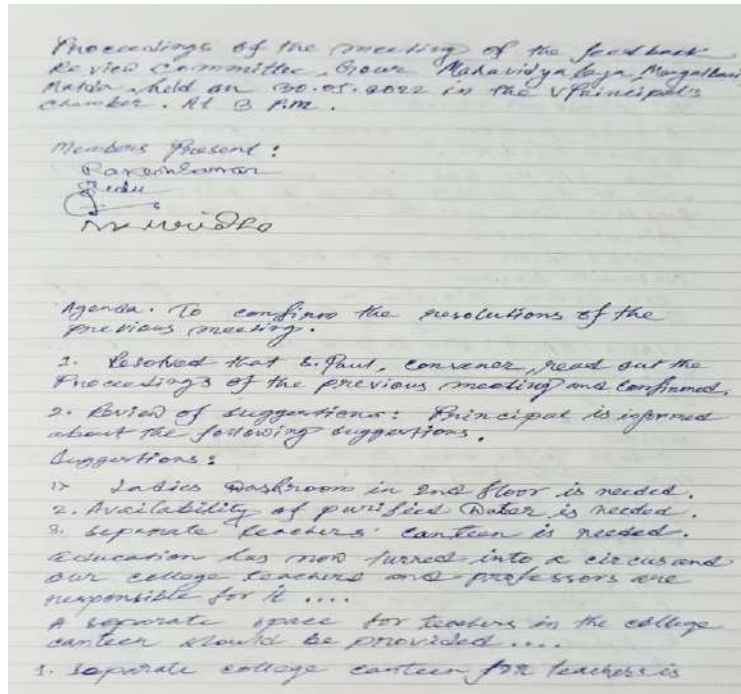 Proceedings of the meeting of the feedback
Review Committee, Gour Mahavidyalaya, Mangalbari
Malda, held on 30.05.2022 in the Principal's
chamber. At 3 P.M.
Members Present:
Agenda. To confirm the resolutions of the
previous meeting.
1. Resolved that S. Paul, convener, read out the
Proceedings of the previous meeting and confirmed.
2. Review of suggestions: Principal is informed
about the following suggestions.
Suggestions:
1> Ladies Washroom in 2nd floor is needed.
2. Availability of purified Water is needed.
3. Separate teachers' canteen is needed.
Education has now turned into a circus and
our college teachers and professors are
responsible for it ....
A separate space for teachers in the college
canteen should be provided ....
1. Separate college canteen for teachers is